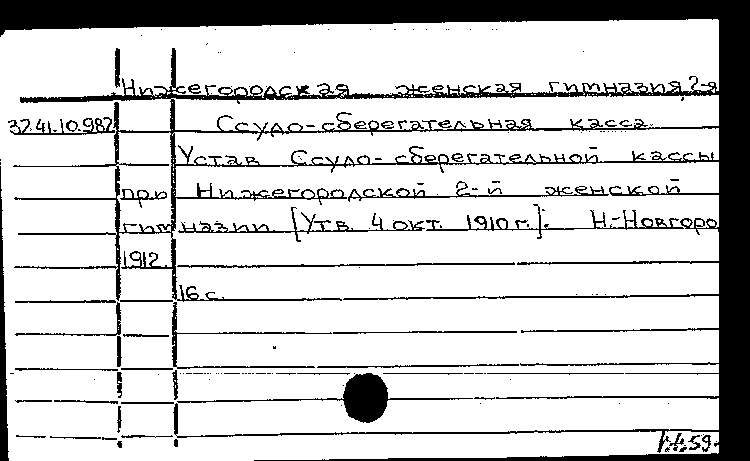 Нижегородская женская гимназия, 2-я
37.41.10.982 Ссудо-сберегательная касса.
Устав Ссудо-сберегательной кассы
при Нижегородской 2-й женской
гимназии [Утв. 4 окт. 1910 г.]. Н.-Новгоро
1912.
16 с.